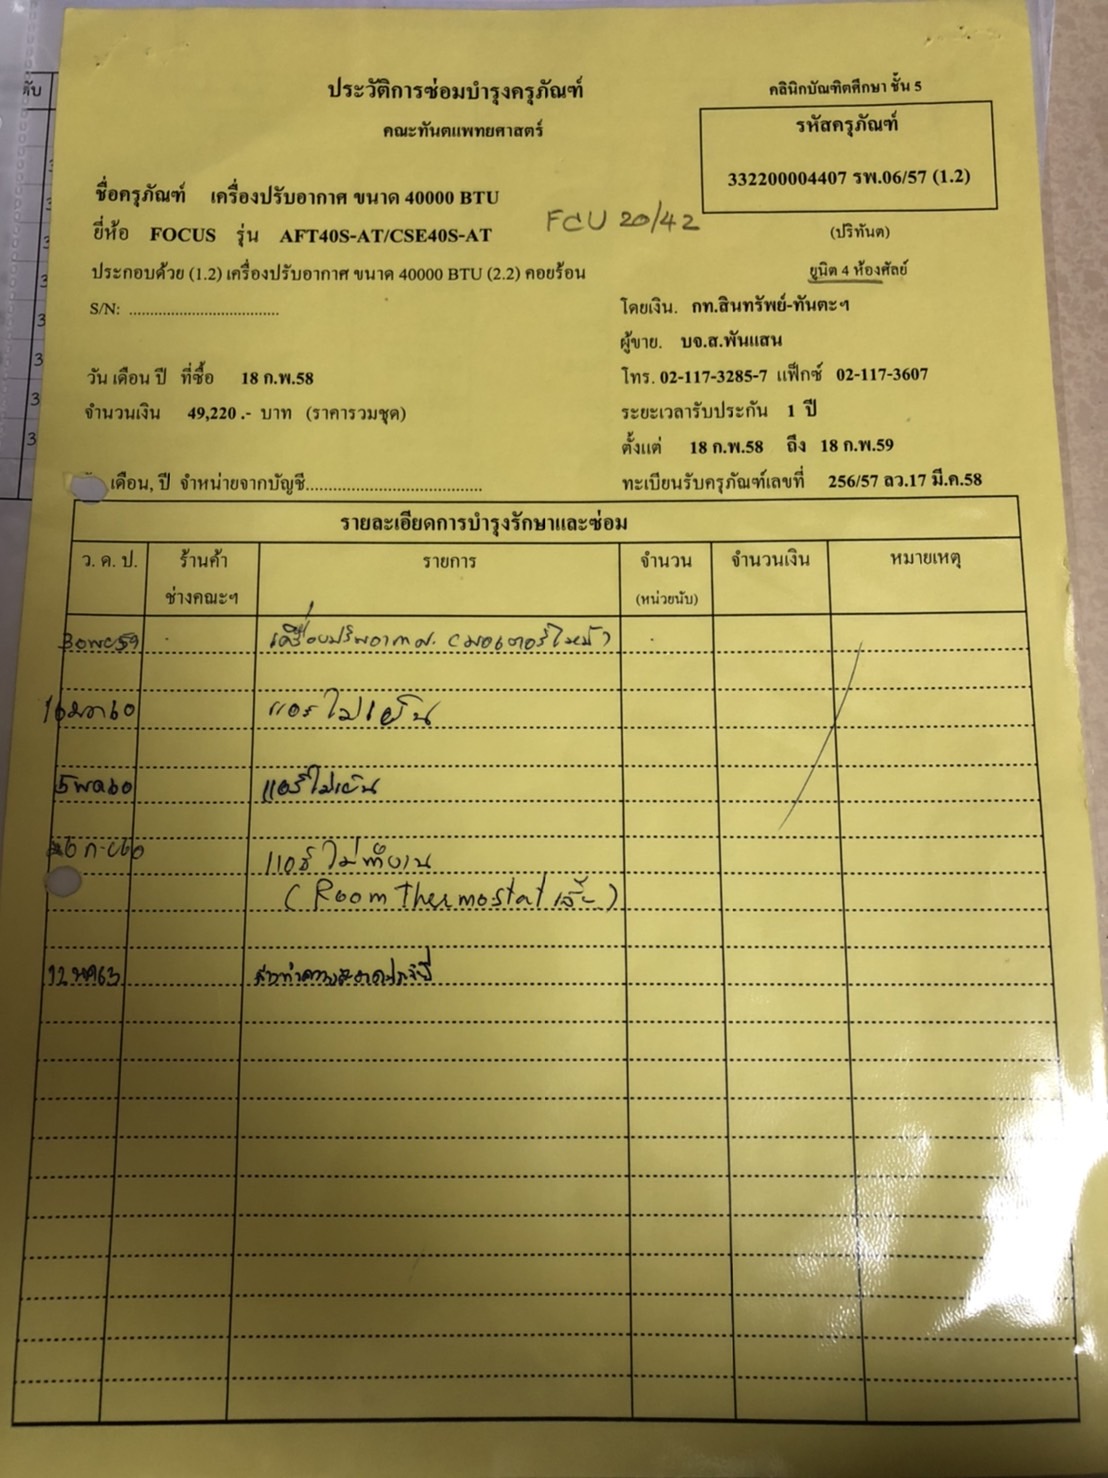 ดับ
คลินิกบัณฑิตศึกษา ชั้น 5
ประวัติการซ่อมบำรุงครุภัณฑ์
คณะทันตแพทยศาสตร์
รหัสครุภัณฑ์
332200004407 รพ.06/57 (1.2)
ชื่อครุภัณฑ์ เครื่องปรับอากาศ ขนาด 40000 BTU
ยี่ห้อ FOCUS รุ่น AFT40S-AT/CSE40S-AT
FCU 20/42
(ปริทันต)
ประกอบด้วย (1.2) เครื่องปรับอากาศ ขนาด 40000 BTU (2.2) คอยร้อน
ยูนิต 4 ห้องศัลย์
S/N: ....................................
โดยเงิน. กท.สินทรัพย์-ทันตะฯ
ผู้ขาย. บจ.ส.พันแสน
วัน เดือน ปี ที่ซื้อ 18 ก.พ.58
โทร. 02-117-3285-7 แฟ็กซ์ 02-117-3607
จำนวนเงิน 49,220 .- บาท (ราคารวมชุด)
ระยะเวลารับประกัน 1 ปี
ตั้งแต่ 18 ก.พ.58 ถึง 18 ก.พ.59
เดือน, ปี จำหน่ายจากบัญชี....................................
ทะเบียนรับครุภัณฑ์เลขที่ 256/57 ลว.17 มี.ค.58
รายละเอียดการบำรุงรักษาและซ่อม
ว. ด. ป. ร้านค้า รายการ จำนวน จำนวนเงิน หมายเหตุ
ช่างคณะฯ (หน่วยนับ)
เครื่องปรับอากาศ (มอเตอร์ไหม้)
แอร์ไม่เย็น
5 พค 60 แอร์ไม่เย็น
แอร์ไม่ทำงาน
(Room Thermostat เสีย)
ล้างทำความสะอาดประจำปี